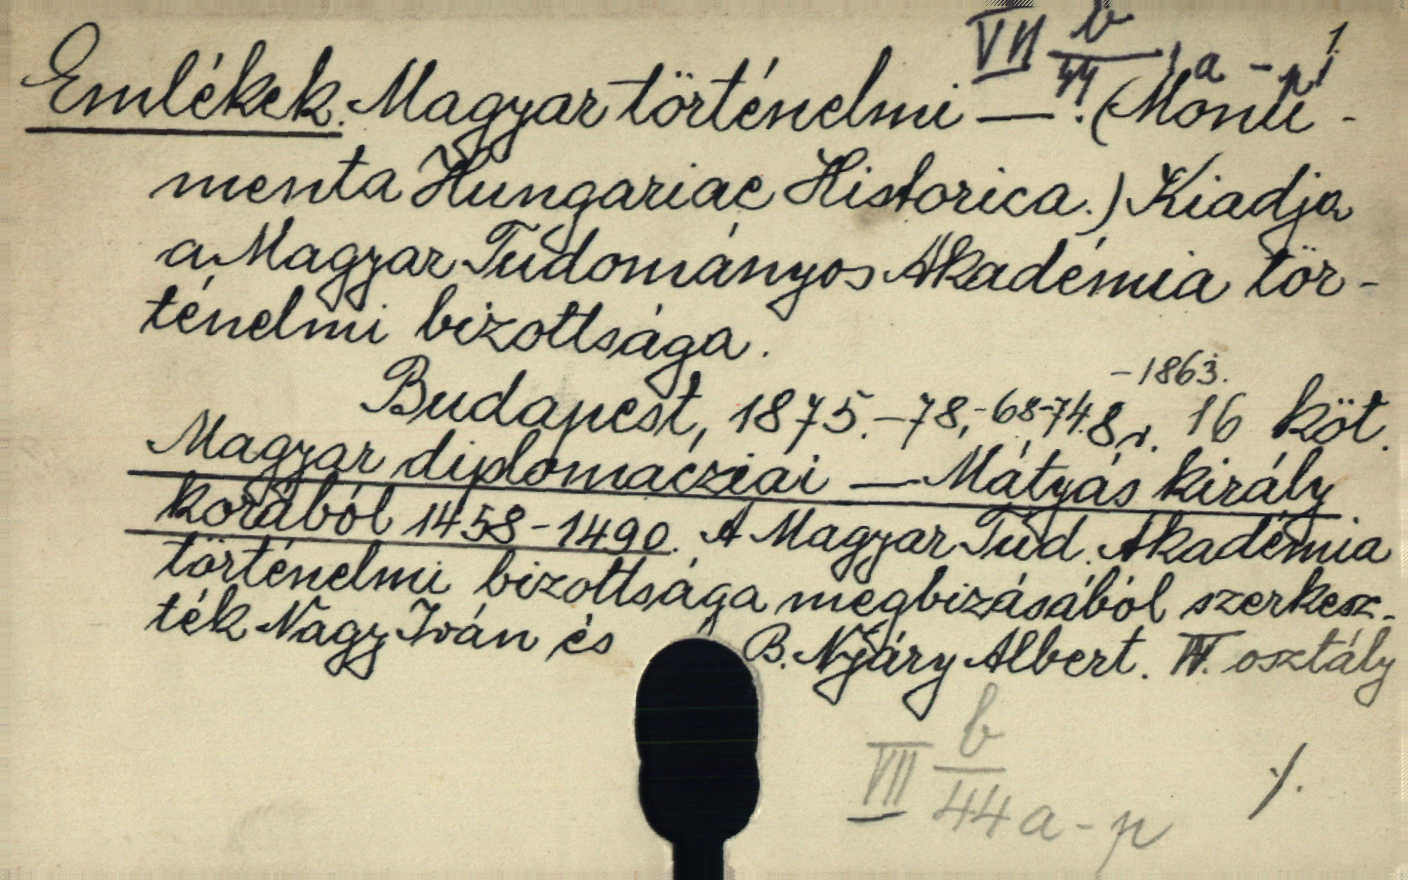 VII b/44, a - p 1.
Emlékek. Magyar történelmi —. (Monu-
menta Hungariae Historica.) Kiadja
a Magyar Tudományos Akadémia tör-
ténelmi bizottsága.
-1863.
Budapest, 1875.-78,-68-74. 8 r. 16 köt.
Magyar diplomácziai — Mátyás király
korából 1458-1490. A Magyar Tud. Akadémia
történelmi bizottsága megbizásából szerkesz-
ték Nagy Iván és B. Nyáry Albert. IV. osztály
VII b/44 a - p ./.